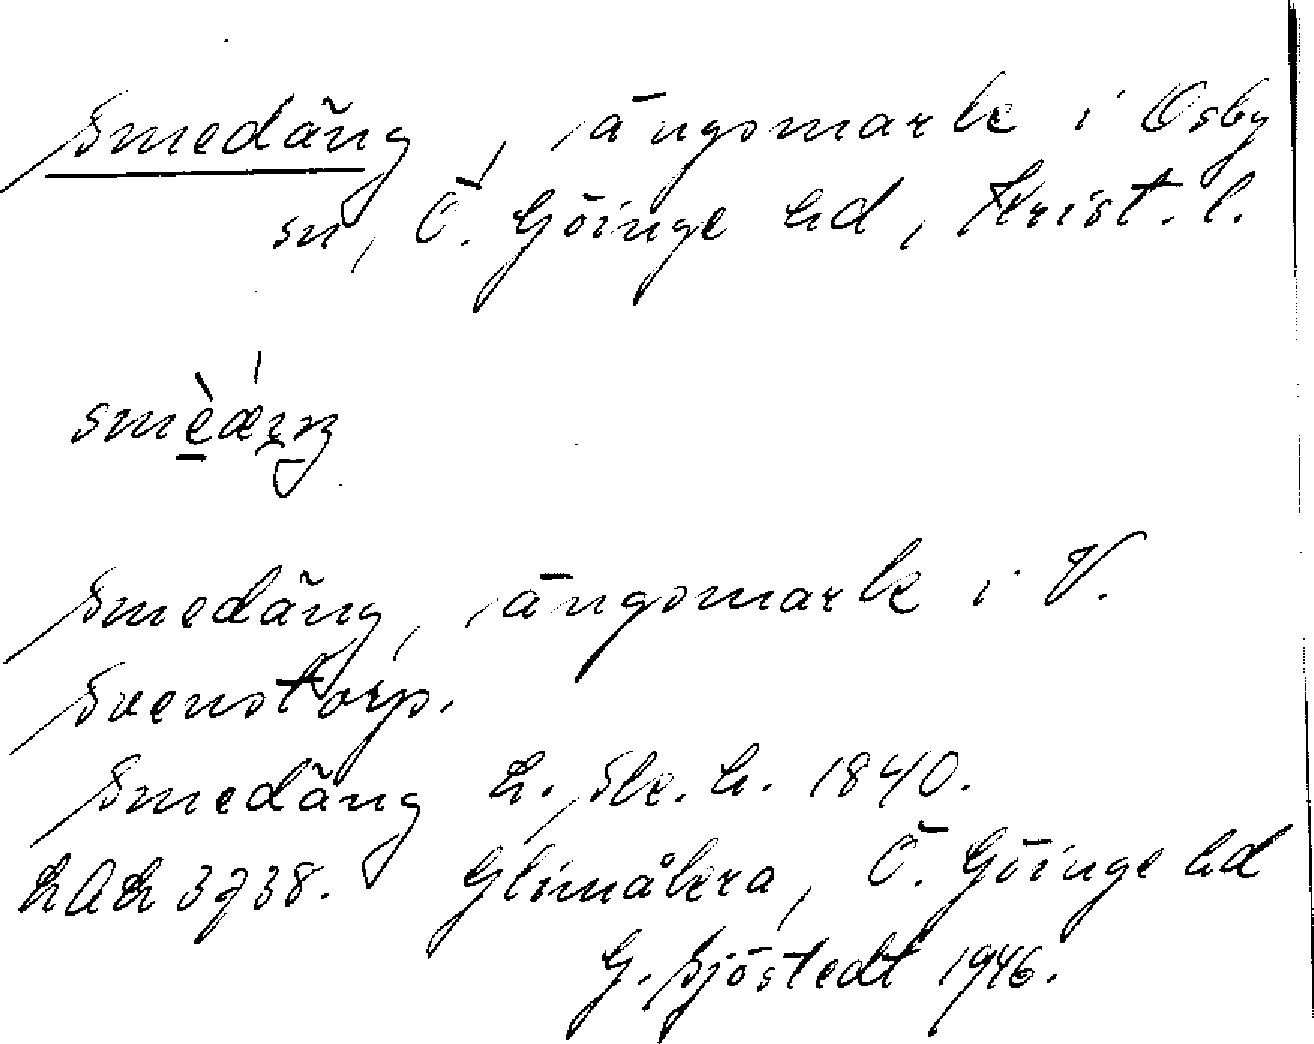 Smedäng, ängsmark i Osby
sn, Ö. Göinge hd, Krist. l.
Smedäng, ängsmark i V.
Svenstorp.
Smedäng L. Sk. h. 1840.
LAL 3738. Glimåkra, Ö. Göinge hd
G. Sjöstedt 1946.